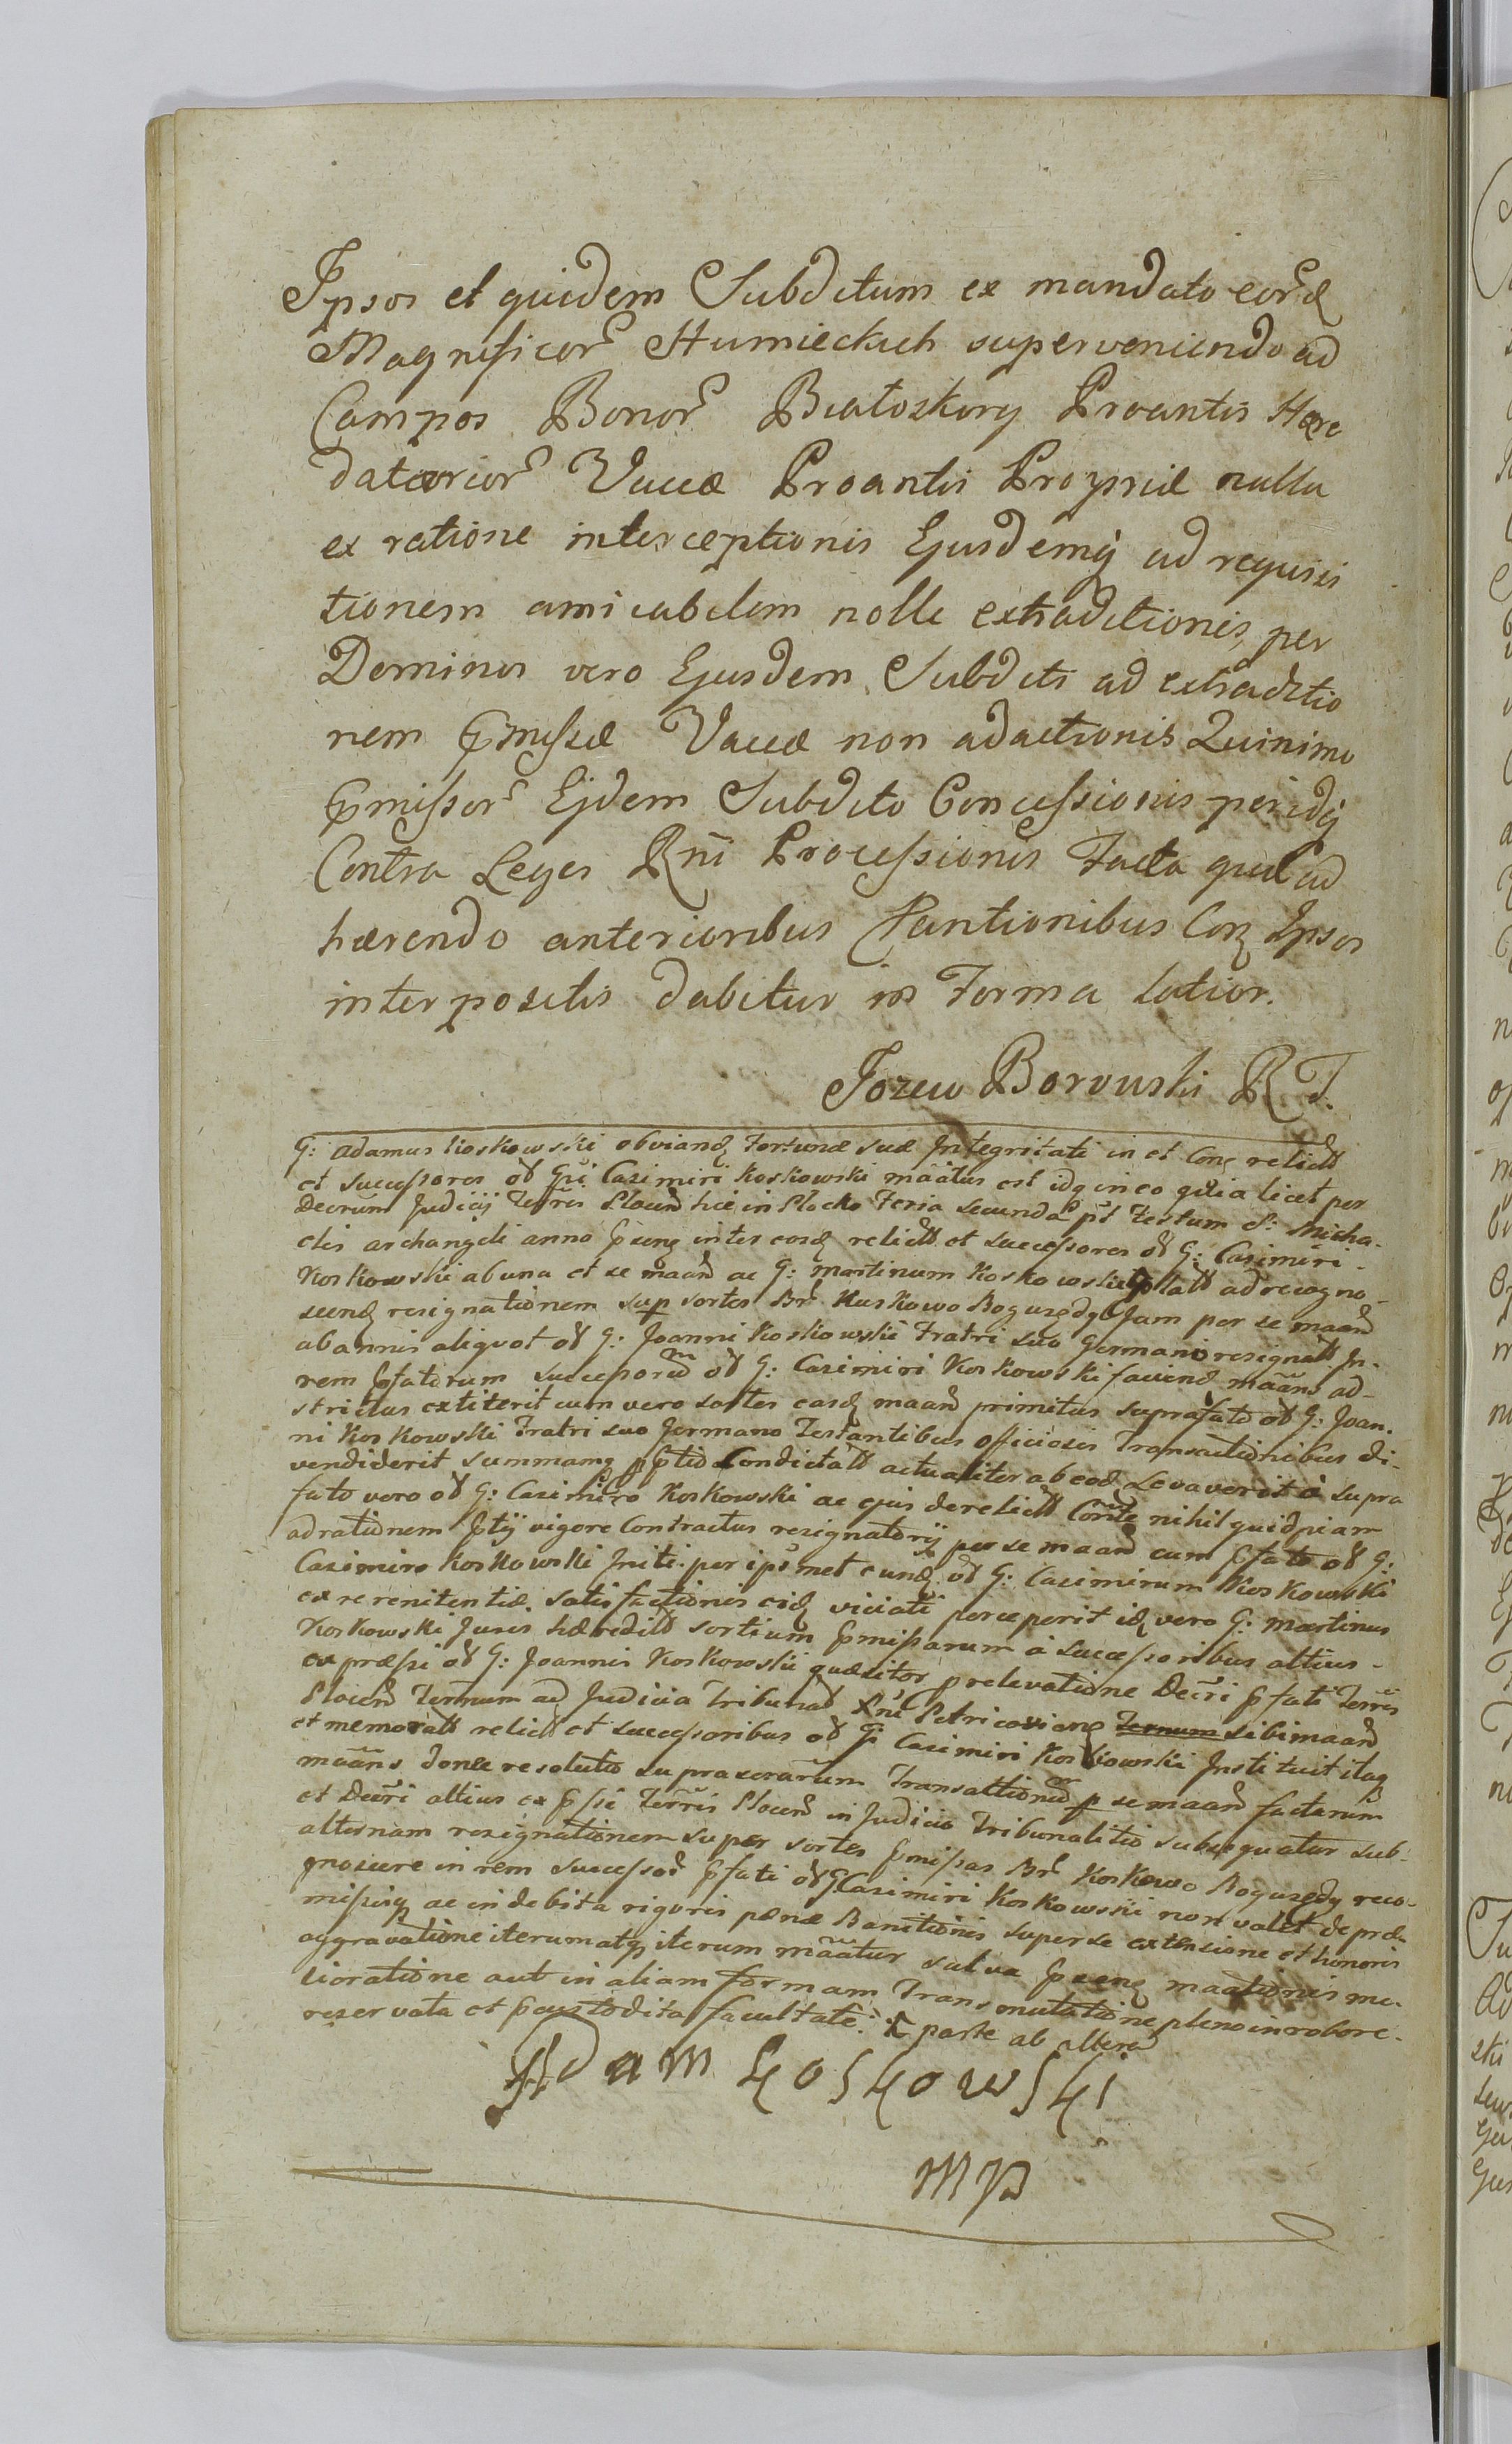 Ipsos et quidem Subditum ex mandato eor
Magnificor Humieckich superveniendo ad
Campos Bonor Białoskory Proantis Hære
datarior Vaccæ Proantis Propriæ nulla
ex ratione interceptionis Ejusdemq ad requisi
tionem amicabilem nolle extraditionis, per
Dominos vero Ejusdem Subditi ad extraditio
nem pmissæ Vaccæ non adactionis Quinimo
pmissor Ejdem Subdito Concessionis peridq
Contra Leges Rni Processionis Facta quæ ad
hærendo anterioribus Mantionibus Con Ipsos
interpositis dabitur in Forma latior.
Jozew Borowski R. T.
G: Adamus Koskowski obviand Fortunæ suæ Integritati in et Con relict
et successores od Gni Casimiri Koskowski mãatus est idq in eo quia licet per
Decrum Judicij Terris Plocen hic in Plocko Feria secunda pt Festum S: Micha-
elis archangeli anno psenq inter eosd relict et successores od G: Casimiri
Koskowski ab una et se maan ac G: Martinum Koskowski lat ad recogno-
scend resignationem sup sortes Br Kuskowo Bogusędy Jam per se maan
ab annis aliquot od G: Joanni Koskowski Fratri suo Germano resignatt In-
rem pfatorum successorum od G: Casimiri Koskowski faciend mãans ad-
strictus extiterit cum vero sortes easd maan primitus suprafato od G: Joan-
ni Koskowski Fratri suo Germano Testantibus officiosis Transactionibus di-
vendiderit summamq p ptio Condictatt actualiter ab eod Levaverit à supra
fato vero od G: Casimiro Koskowski ac ejus derelict Conte nihil quidpiam
ad rationem ptij vigore Contractus resignatorij per se maan cum pfato od G:
Casimiro Koskowski Initi per ipsmet eund od G: Casimirum Koskowski
ex rerenitentiæ satisfactionis eid viciati perceperit id vero G: Martinus
Koskowski Juris hæredit sortium pmissarum à successoribus altius
expræssi od G: Joannis Koskowski quæsitor p relevatione Decri pfati Terris
Plocen Termum ad Judicia Tribunal Rni Petricoviens Termum sibi maan
et memoratt relict et successoribus od G: Casimiri Koskowski Instituit itaq
mãans donec resolutio supraxorarum Transactionum p se maan factarum
et Decri altius ex pssi Terris Plocen in Judicio Tribunalitio subsequatur sub-
alternam resignationem super sortes pmissas Br Koskowo Bogusędy reco-
gnoscere in rem successor pfati od G: Casimiri Koskowski non valet de præ-
missisq ac indebita rigoris pænæ Banitionis super se extensione et honoris
aggravatione iterumatq iterum mãatur salva psenq maationis me-
lioratione aut in aliam formam Transmutatione pleno in robore
reservata et pcustodita facultate. parte ab altera
Adam Koskowski
mp